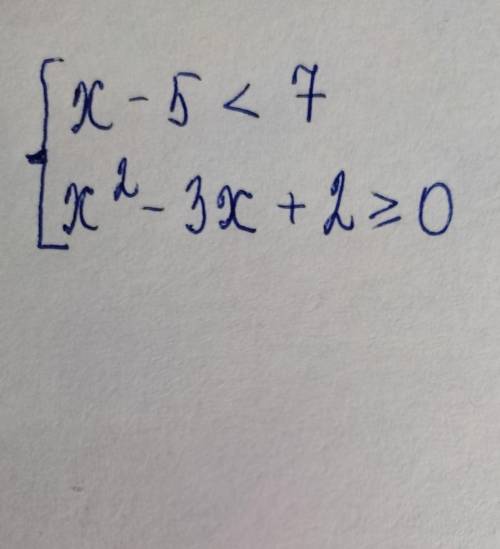 x - 5 < 7
x² - 3x + 2 ≥ 0